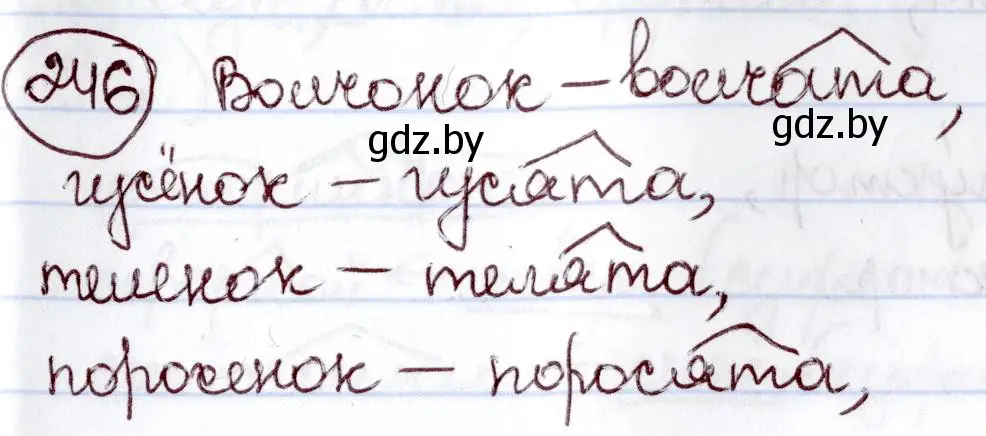 246 Волчонок – волчата,
gdz.by
gdz.by
гусёнок – гусята,
теленок – телята,
поросенок – поросята,